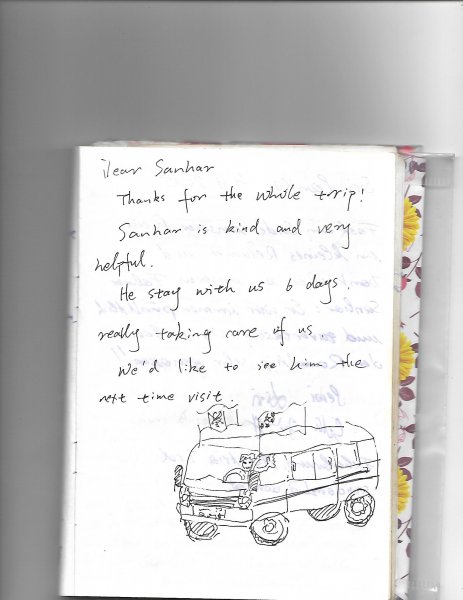 Dear Sanhar
Thanks for the whole trip!
Sanhar is kind and very
helpful.
He stay with us 6 days.
really taking care of us.
We'd like to see him the
next time visit.